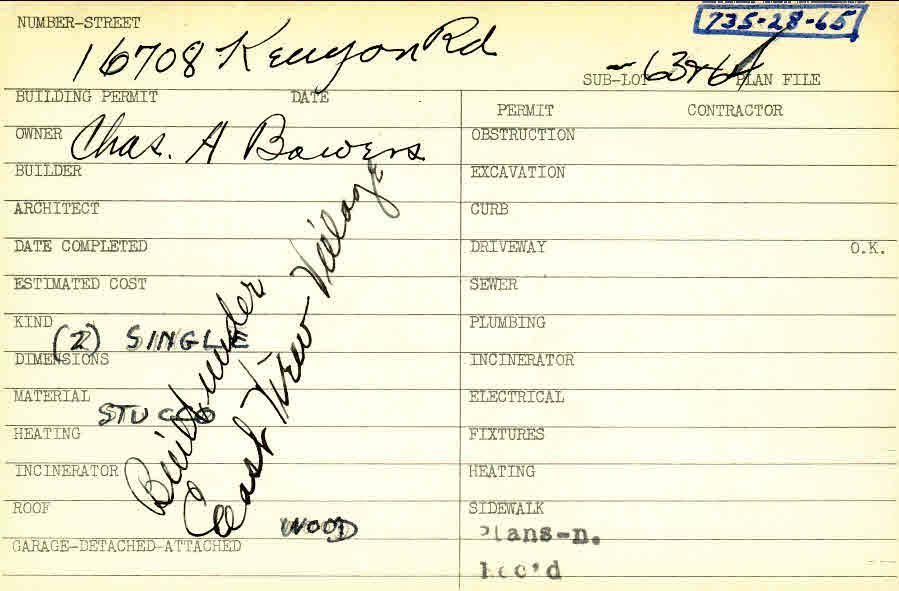 NUMBER-STREET
735-28-65
16708 Kenyon Rd
SUB-LOT 63&64 PLAN FILE
BUILDING PERMIT DATE
PERMIT CONTRACTOR
OWNER Chas. A Bowers
OBSTRUCTION
BUILDER
EXCAVATION
ARCHITECT
CURB
DATE COMPLETED
DRIVEWAY O.K.
ESTIMATED COST
SEWER
KIND (2) SINGLE
PLUMBING
DIMENSIONS
INCINERATOR
MATERIAL STUCCO
ELECTRICAL
HEATING
FIXTURES
INCINERATOR
HEATING
ROOF WOOD
SIDEWALK
GARAGE-DETACHED-ATTACHED
Built under
East View Village
Plans-n.
Rec'd